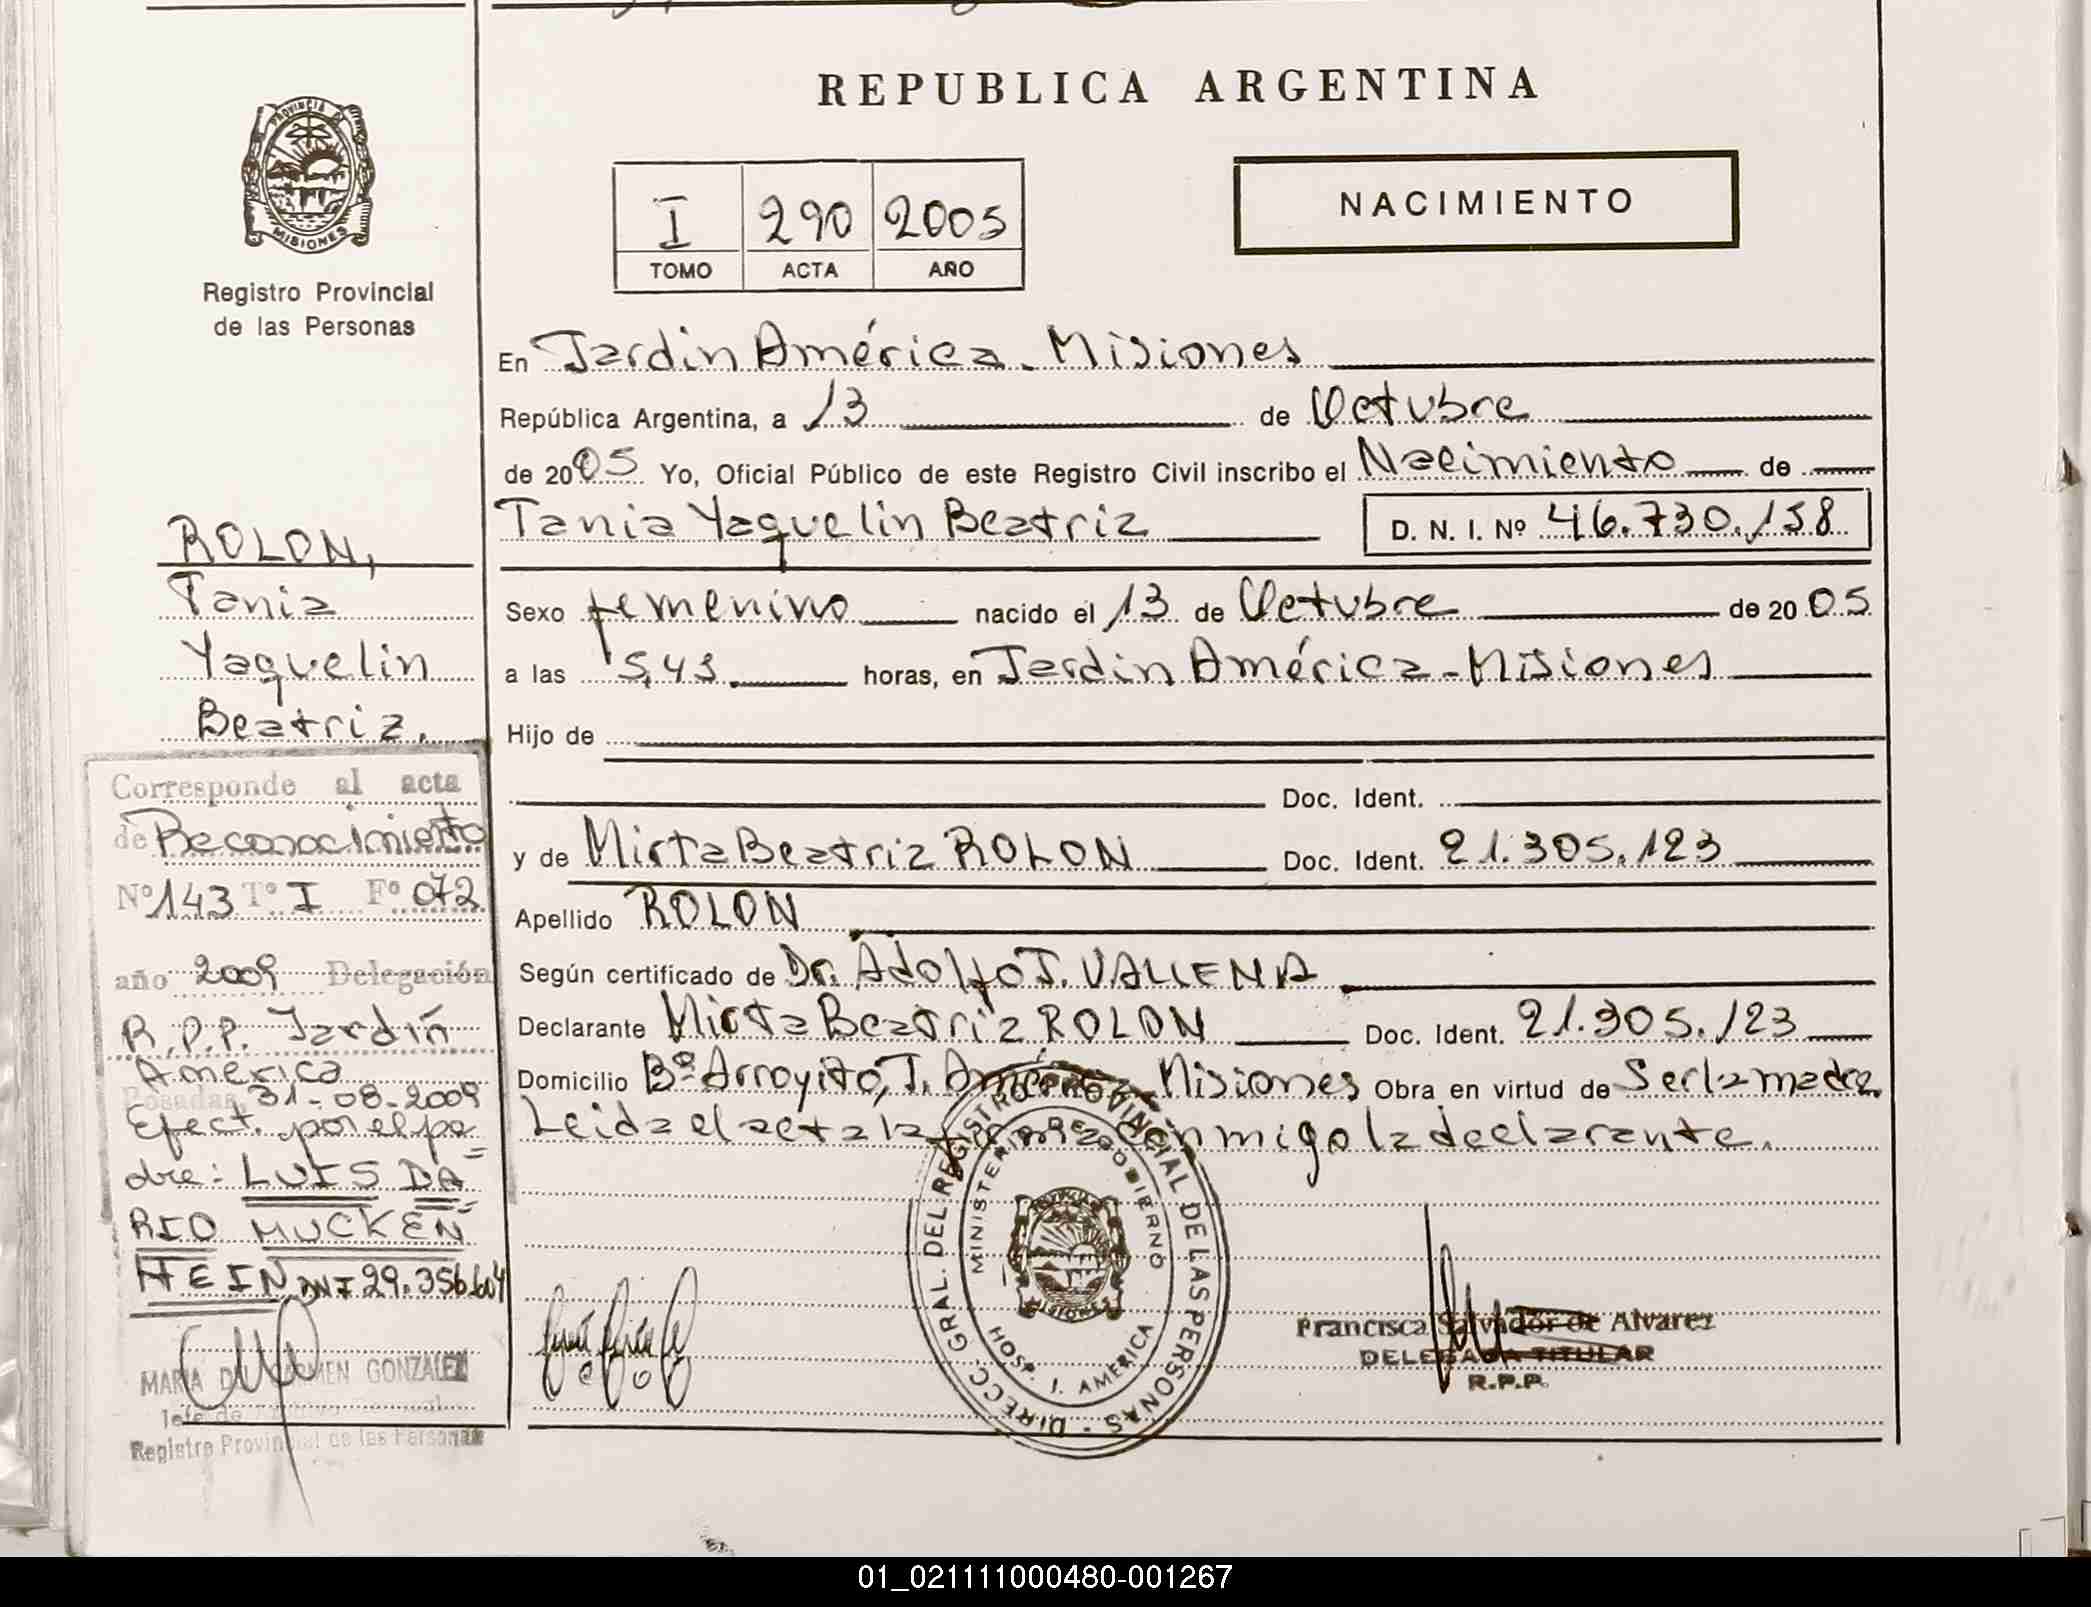 REPUBLICA ARGENTINA
PROVINCIA DE
MISIONES
Registro Provincial
de las Personas
I 290 2005
TOMO ACTA AÑO
NACIMIENTO
En Jardin América - Misiones
República Argentina, a 13 de Octubre
de 2005 Yo, Oficial Público de este Registro Civil inscribo el Nacimiento de
Tania Yaquelin Beatriz D. N. I. Nº 46.730.158
Sexo femenino nacido el 13 de Octubre de 2005
a las 5,43 horas, en Jardin América - Misiones
Hijo de
Doc. Ident.
y de Mirta Beatriz ROLON Doc. Ident. 21.305.123
Apellido ROLON
Según certificado de Dr. Adolfo J. VALLENA
Declarante Mirta Beatriz ROLON Doc. Ident. 21.305.123
Domicilio Bº Arroyito, J. América - Misiones Obra en virtud de Ser la madre.
Leida el acta la firma conmigo la declarante.
ROLON,
Tania
Yaquelin
Beatriz.
Corresponde al acta
de Reconocimiento
Nº 143 Tº I Fº 072
año 2009 Delegación
R.P.P. Jardín
America
Posadas, 31-08-2009
Efect. por el pa=
dre: LUIS DA=
RIO MUCKEN
HEIN DNI 29.356.604
MARIA DEL CARMEN GONZALEZ
Jefe de
Registro Provincial de las Personas
DIRECC. GRAL. DEL REGISTRO PROVINCIAL DE LAS PERSONAS
MINISTERIO DE GOBIERNO
HOSP. J. AMERICA
Francisca Salvador de Alvarez
DELEGADA TITULAR
R.P.P.
01_021111000480-001267